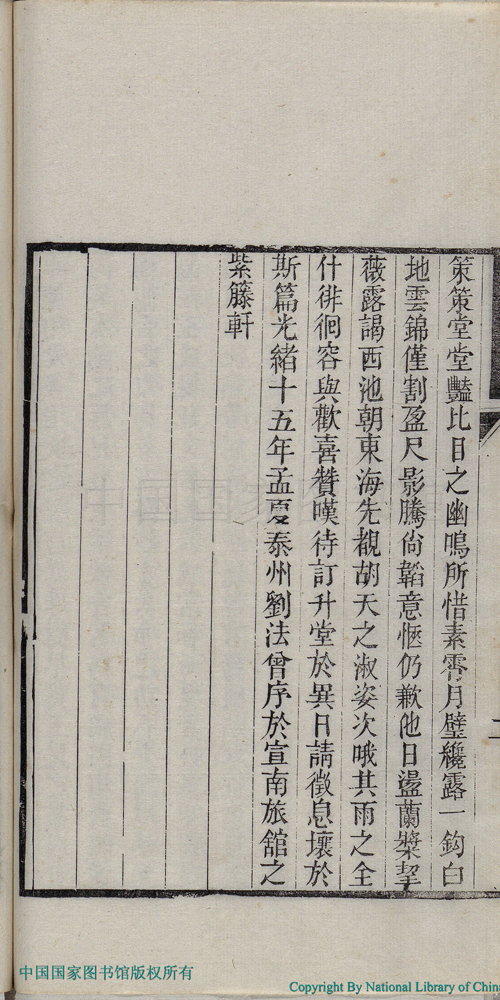 策策堂堂豔比日之幽鳴所惜素霄月璧纔露一鈎白
地雲錦僅割盈尺影騰尙韜意愜仍歉他日盪蘭槳挈
薇露謁西池朝東海先覩胡天之淑姿次哦其雨之全
什徘徊容與歡喜贊嘆待訂升堂於異日請徵息壤於
斯篇光緒十五年孟夏泰州劉法曾序於宣南旅舘之
紫籐軒
中国国家图书馆版权所有
Copyright By National Library of Chin